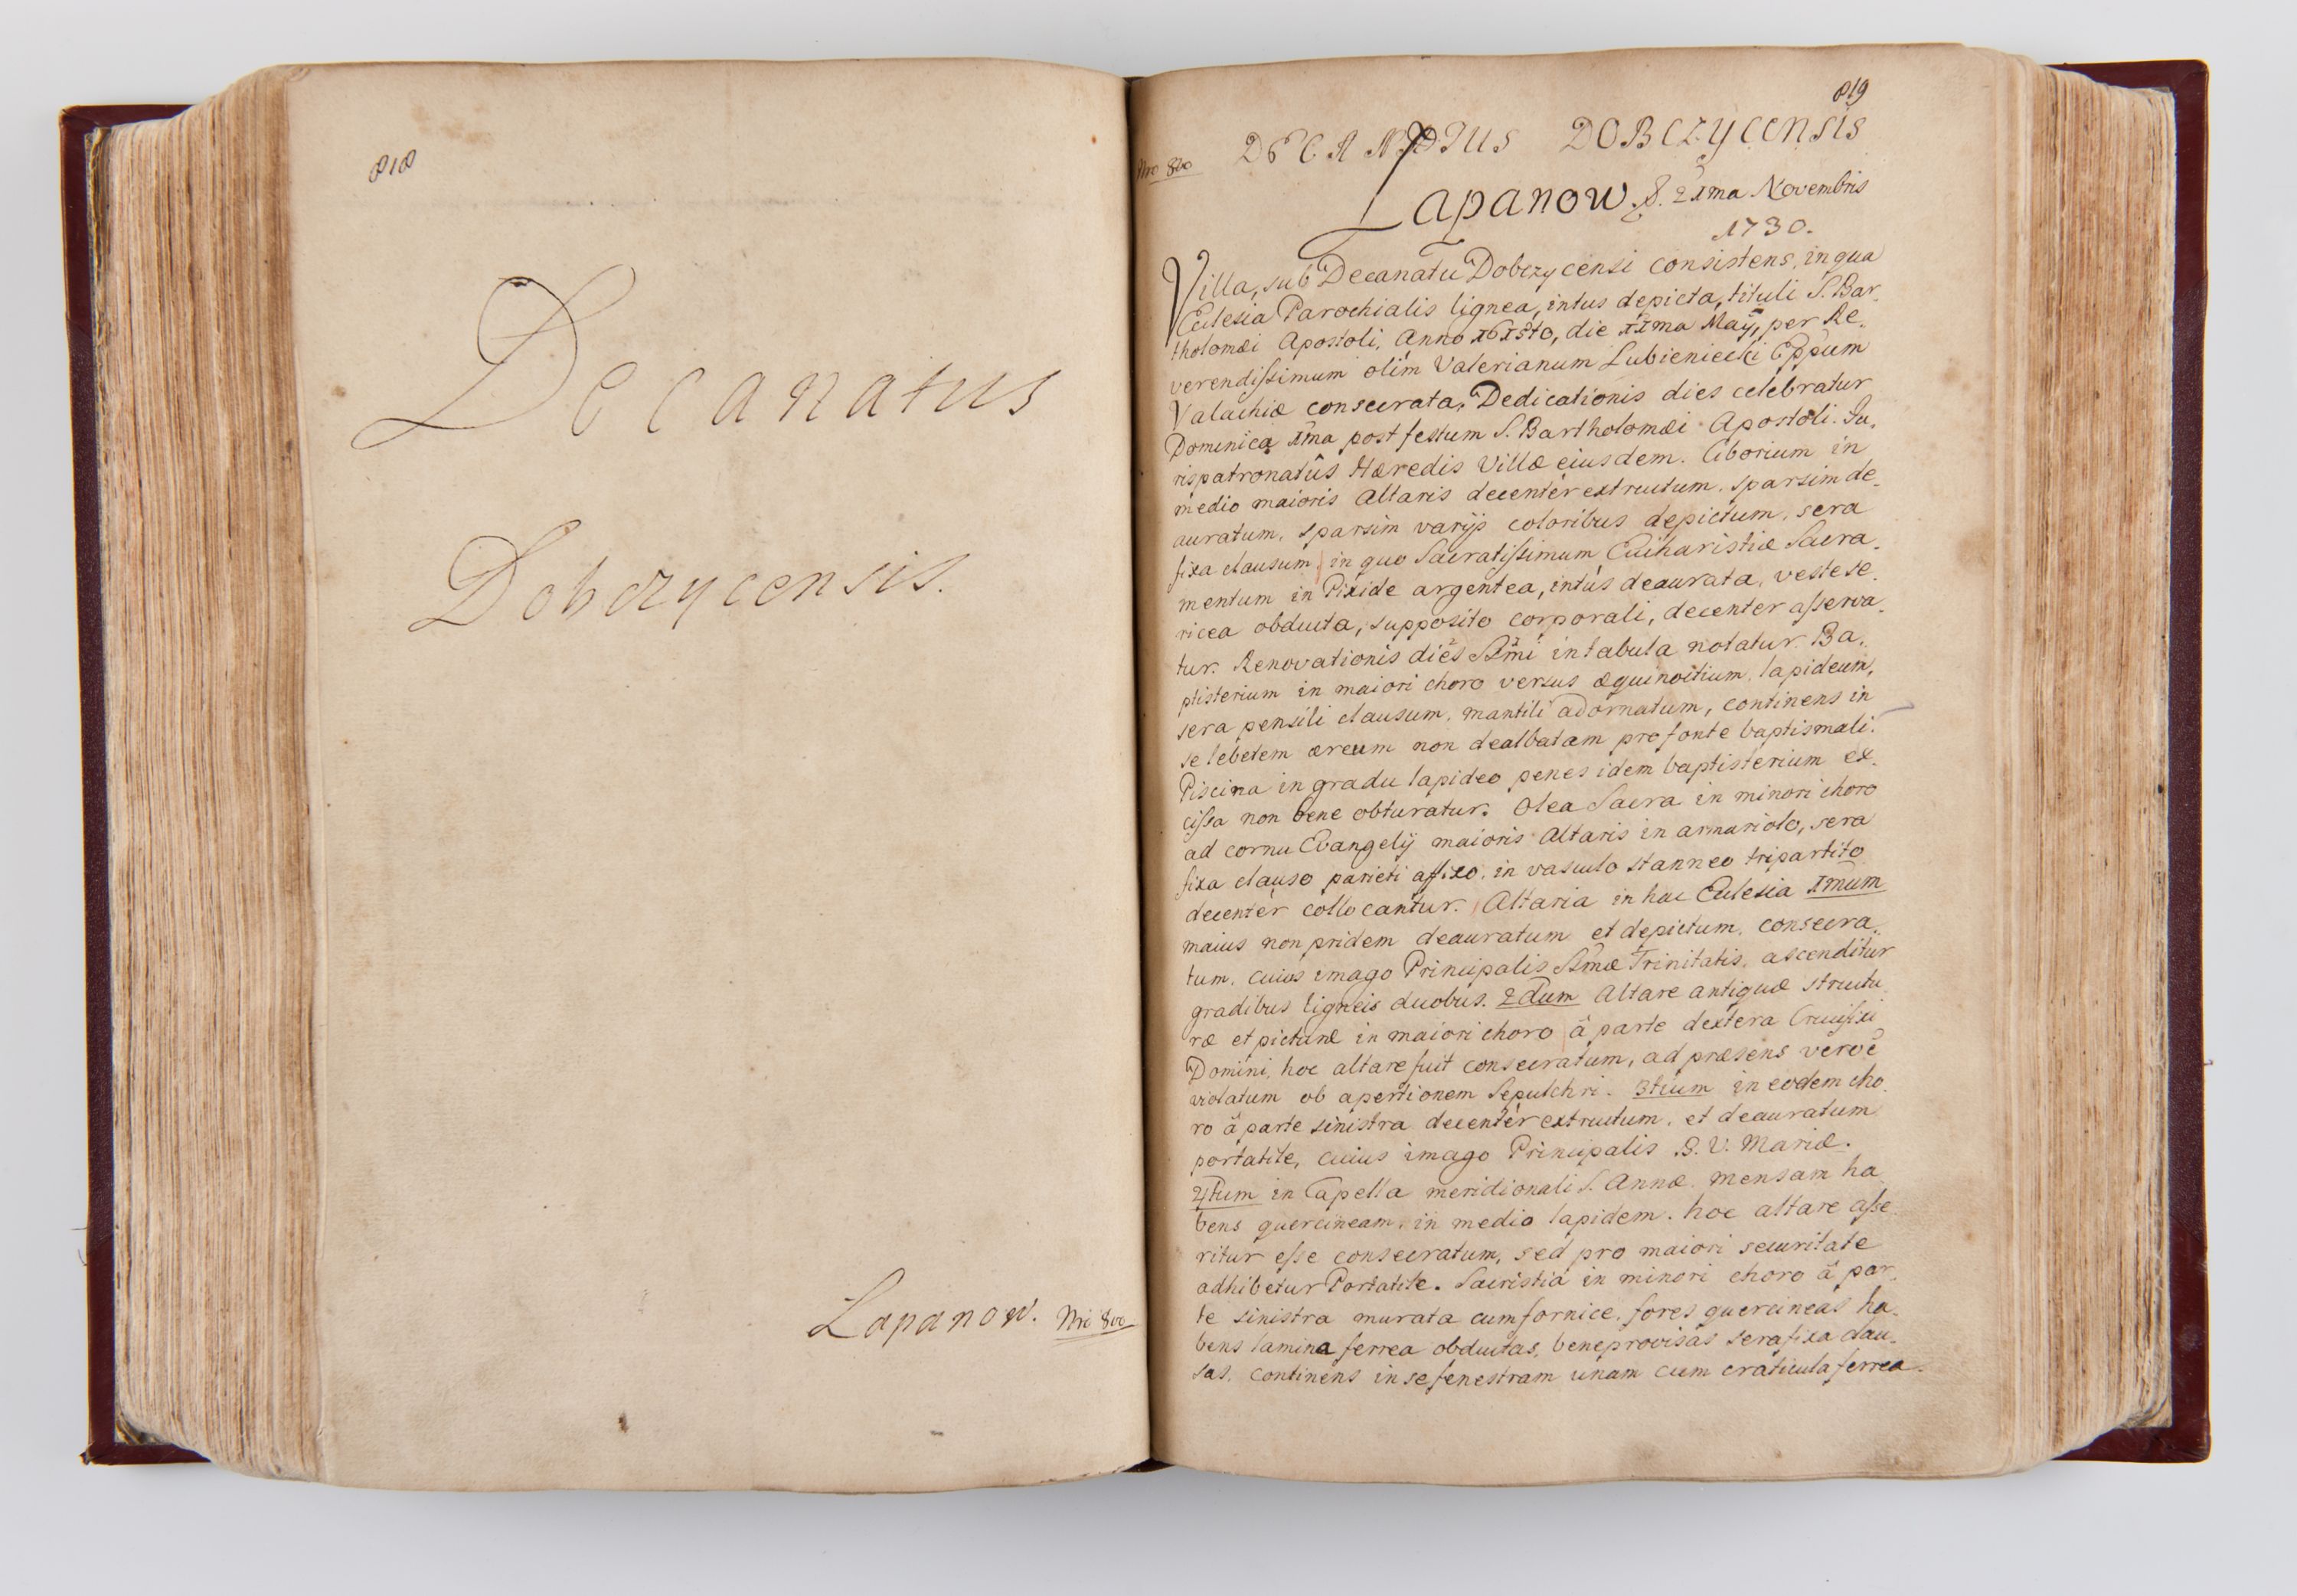 818
Decanatus
Dobczycensis.
Lapanow. Nro 800
819
Nro 800 DECANATUS DOBCZYCENSIS
Lapanow. 21ma Novembris
1730.
Villa, sub Decanatu Dobczycensi consistens, in qua
Ecclesia Parochialis lignea, intus depicta, tituli S. Bar„
tholomæi Apostoli, Anno die May, per Re„
verendissimum olim Valerianum Lubieniecki Eppum
Valachiæ consecrata, Dedicationis dies celebratur
Dominica 1ma post festum S. Bartholomæi Apostoli. Ju„
rispatronatûs Hæredis Villæ eiusdem. Ciborium in
medio maioris Altaris decentèr extructum, sparsim de„
auratum, sparsim varijs coloribus depictum, sera
fixa clausum, in quo Sacratissimum Eucharistiæ Sacra„
mentum in Pixide argentea, intùs deaurata, veste se„
ricea obducta, supposito corporali, decenter asserva„
tur. Renovationis diës SSmi in tabula notatur. Ba„
ptisterium in maiori choro versus æquinoctium, lapideum,
sera pensili clausum, mantili adornatum, continens in
se lebetem æreum non dealbatam pro fonte baptismali.
Piscina in gradu lapideo penes idem baptisterium ex„
cissa non bene obturatur. Olea Sacra in minori choro
ad cornu Evangelij maioris Altaris in armariolo, sera
fixa clauso parieti affixo, in vasculo stanneo tripartito
decentèr collocantur. Altaria in hac Ecclesia 1mum
maius non pridem deauratum et depictum, consecra„
tum, cuius imago Principalis SSmæ Trinitatis, ascenditur
gradibus ligneis duobus. 2dum Altare antiquæ structu
ræ et picturæ in maiori choro â parte dextera Crucifixi
Domini, hoc altare fuit consecratum, ad præsens verò è
violatum ob apertionem Sepulchri. 3tium in eodem cho„
ro â parte sinistra decentèr extructum, et deauratum
portatile, cuius imago Principalis B. V. Mariæ.
4tum in Capella meridionali S. Annæ, mensam ha„
bens quercineam, in medio lapidem. hoc altare asse„
ritur esse consecratum, sed pro maiori securitate
adhibetur Portatile. Sacristia in minori choro â par„
te sinistra murata cum fornice, fores quercineas ha„
bens lamina ferrea obductas, bene provisas sera fixa clau„
sas, continens in se fenestram unam cum craticula ferrea.